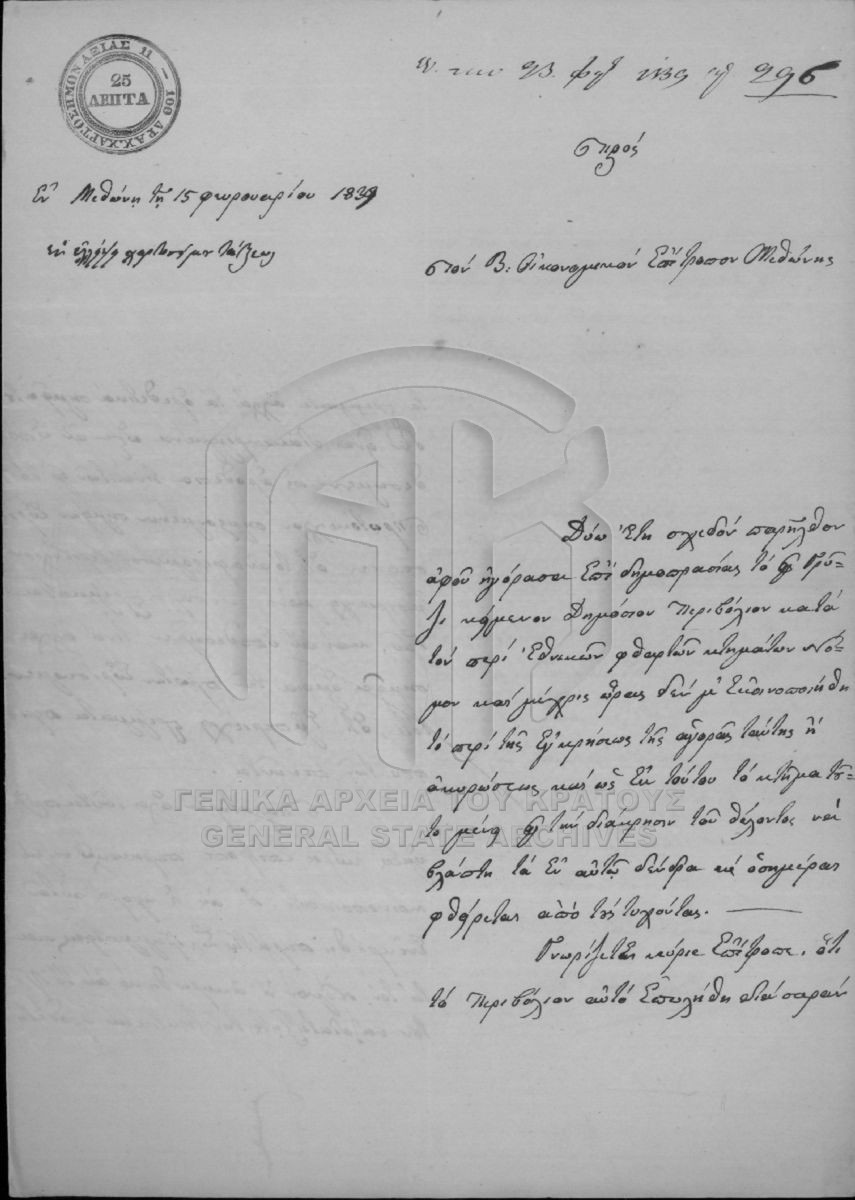 ΧΑΡΤΟΣΗΜΟΝ ΑΞΙΑΣ 11 — 100 ΔΡΑΧ
25
ΛΕΠΤΑ
23 296
Πρὸς
Ἐν Μεθώνῃ τῇ 15 φευρουαρίου 1839
ἐν ἐλλείψῃ χαρτοσήμου τάξεως
στὸν Β: Οἰκονομικὸν Ἐπίτροπον Μεθώνης
Δύω ἔτη σχεδὸν παρῆλθον
ἀφοῦ ἠγόρασα ἐπὶ δημοπρασίας τὸ
κείμενον Δημόσιον Περιβόλιον κατὰ
τὸν περὶ ἐθνικῶν φθαρτῶν κτημάτων Νό-
μον καὶ μέχρις ὥρας δὲν μ' ἐκοινοποιήθη
τὸ περὶ τῆς ἐγκρήσεως τῆς ἀγορᾶς ταύτης ἢ
ἀκυρώσεως καὶ ὡς ἐκ τούτου τὸ κτῆμα τοῦ-
το μένει εἰς τὴν διάκρησιν τοῦ θέλοντος νὰ
βλάψῃ τὰ ἐν αὐτῷ δένδρα κὲ ὁσημέραι
φθείρεται ἀπὸ τοὺς τυχόντας. —
Γνωρίζεται κύριε Ἐπίτροπε, ὅτι
τὸ Περιβόλιον αὐτὸ ἐπωλήθη διὰ σαράν
ΓΕΝΙΚΑ ΑΡΧΕΙΑ ΤΟΥ ΚΡΑΤΟΥΣ
GENERAL STATE ARCHIVES